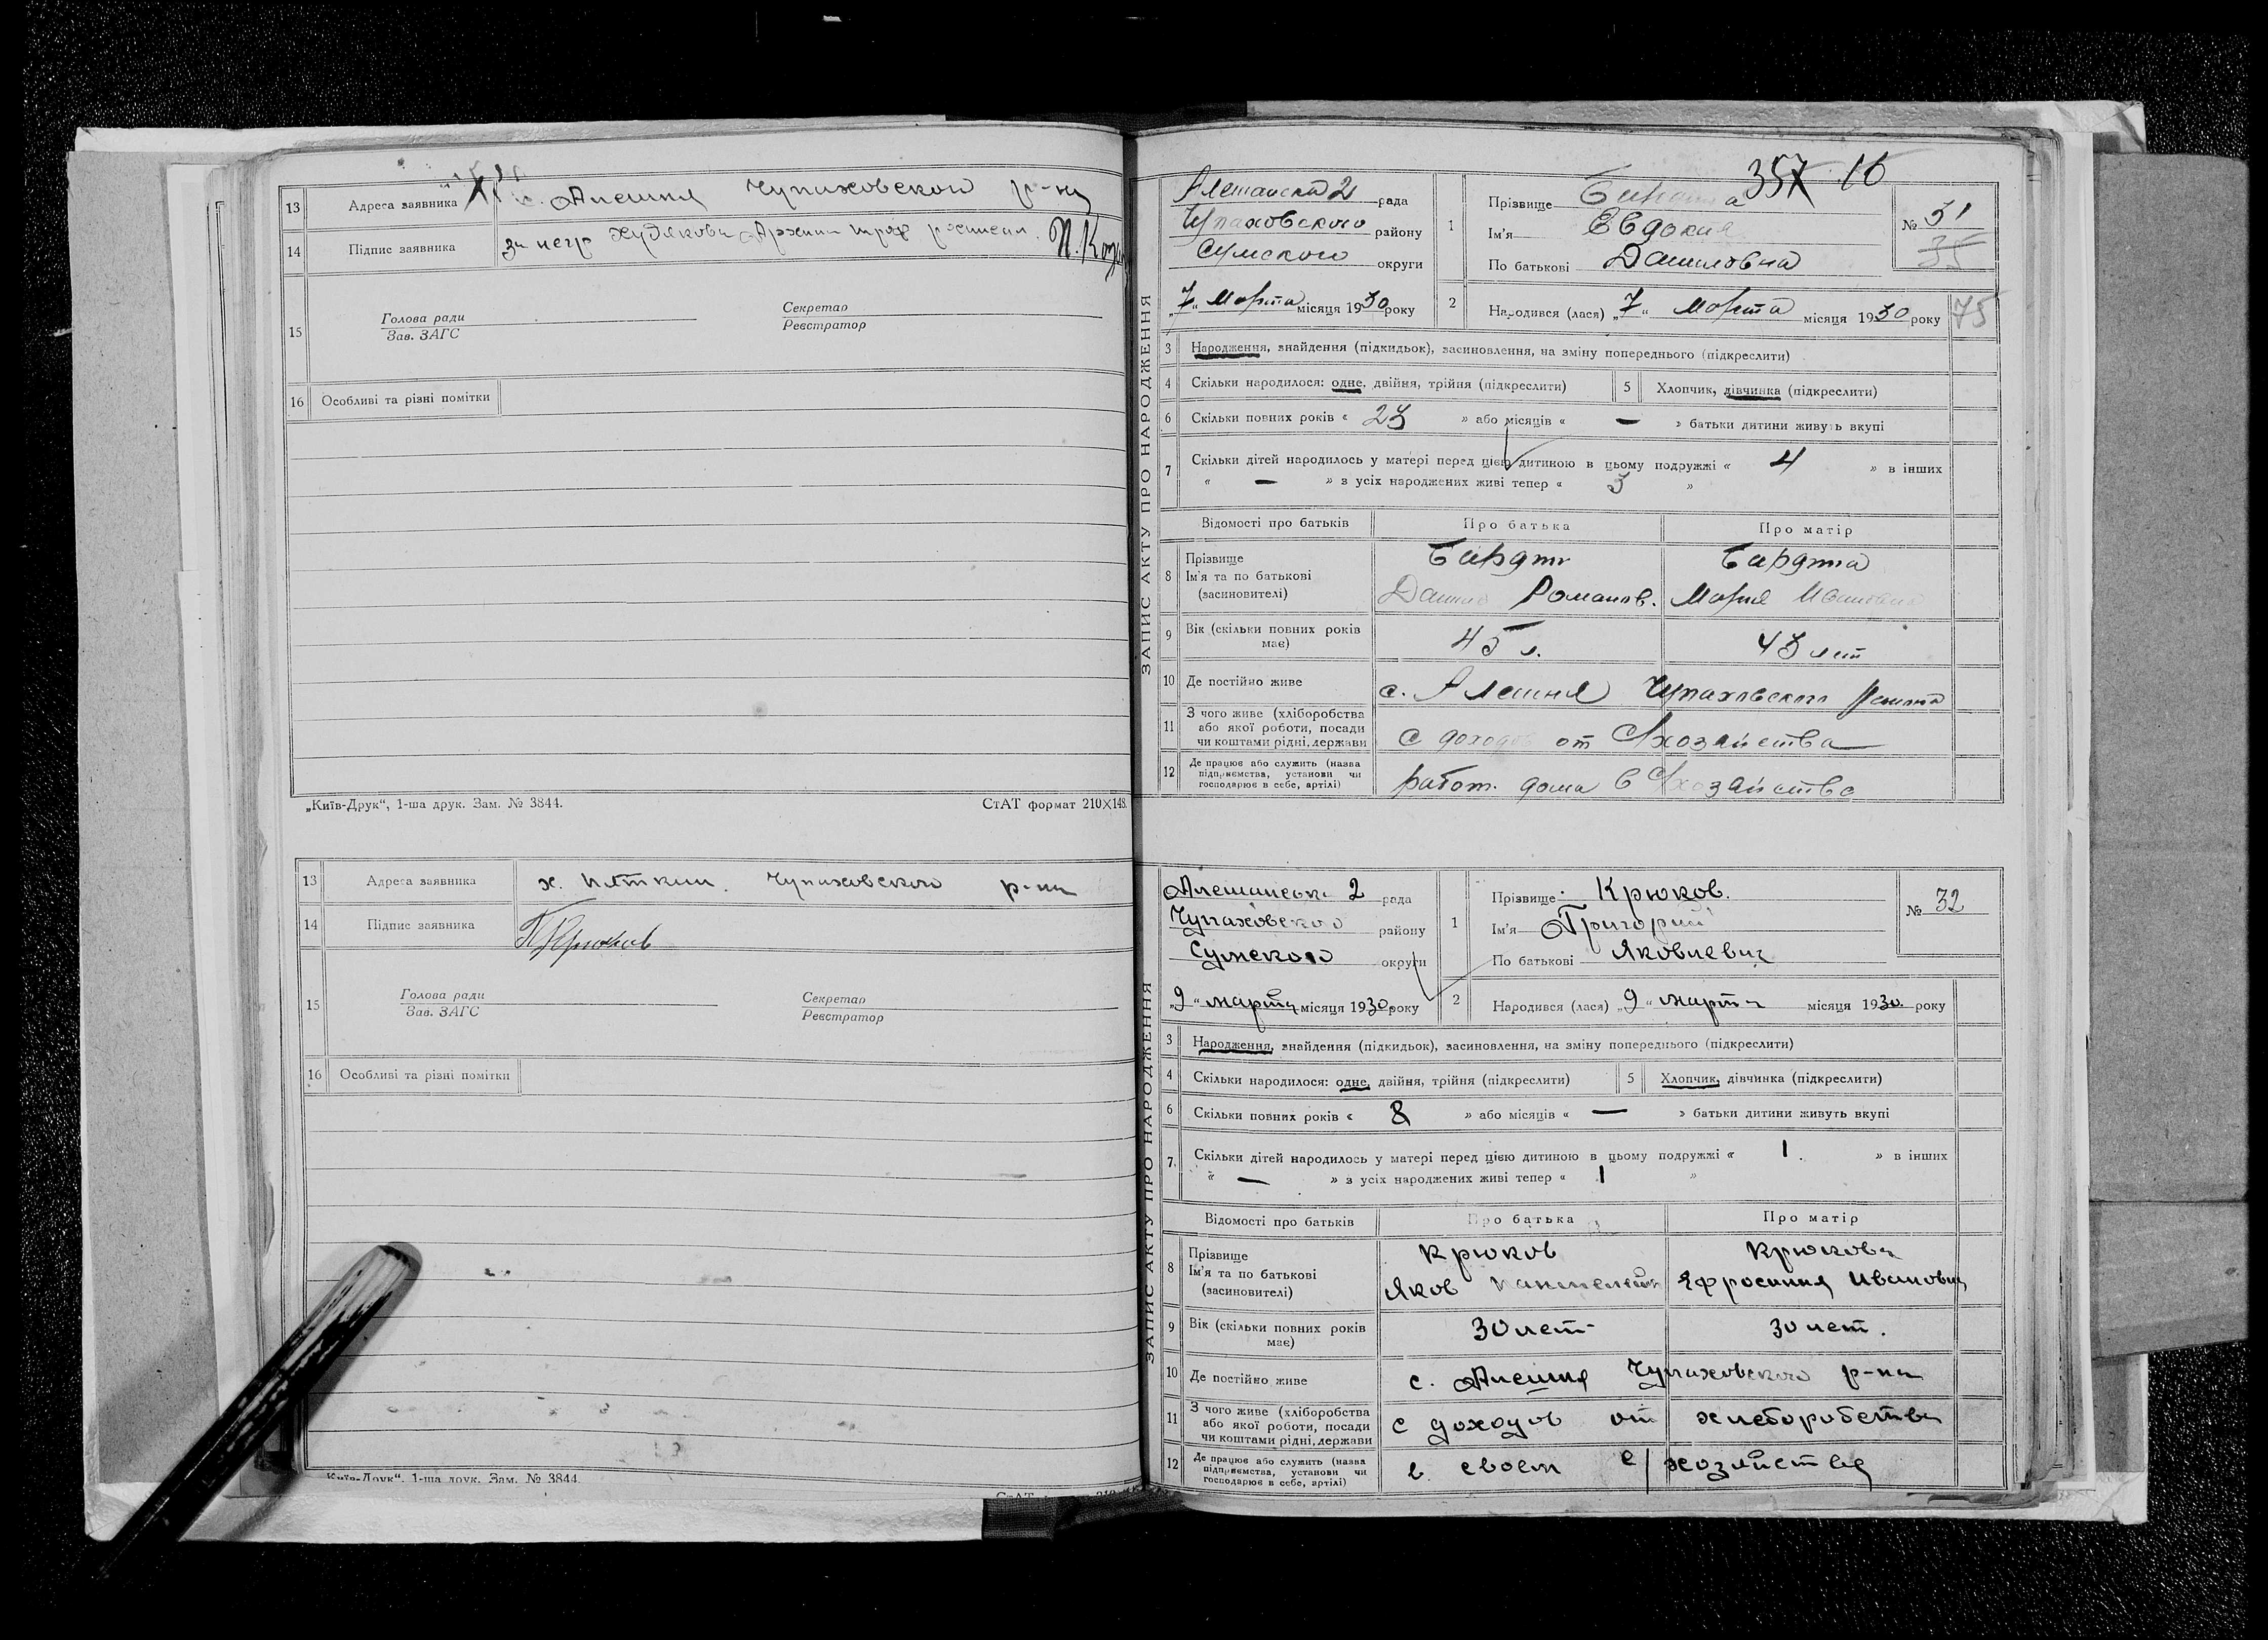 13 Адреса заявника с. Алешня Чупаховского р-на
14 Підпис заявника за негр Худякова расписал. П. Коз
15 Голова ради Секретар
Зав. ЗАГС Реєстратор
16 Особливі та різні помітки
„Київ-Друк“, 1-ша друк. Зам. № 3844. СтАТ формат 210×148.
13 Адреса заявника х. Пяткин. Чупаховского р-на
14 Підпис заявника Крюков
15 Голова ради Секретар
Зав. ЗАГС Реєстратор
16 Особливі та різні помітки
Київ-Друк“, 1-ша друк. Зам. № 3844.
ЗАПИС АКТУ ПРО НАРОДЖЕННЯ
357 16
2 рада
Чупаховского району
Сумского округи
„7“ Марта місяця 1930 року
1 Прізвище
Ім'я Евдокия
По батькові Даниловна
№ 31
35
2 Народився (лася) „7“ Марта місяця 1930 року 75
3 Народження, знайдення (підкидьок), засиновлення, на зміну попереднього (підкреслити)
4 Скільки народилося: одне, двійня, трійня (підкреслити) 5 Хлопчик, дівчинка (підкреслити)
6 Скільки повних років « 23 » або місяців « — » батьки дитини живуть вкупі
7 Скільки дітей народилось у матері перед цією дитиною в цьому подружжі « 4 » в інших
« — » з усіх народжених живі тепер « 3 »
Відомості про батьків Про батька Про матір
8 Прізвище
Ім'я та по батькові
(засиновителі) Данило Романов. Мария Ивановна
9 Вік (скільки повних років має) 45 л. 43 лет
10 Де постійно живе с. Алешня Чупаховского района
11 З чого живе (хліборобства або якої роботи, посади чи коштами рідні, держави с доходов от С/хозайства
12 Де працює або служить (назва підприємства, установи чи господарює в себе, артілі) работ. дома в С/хозайстве
ЗАПИС АКТУ ПРО НАРОДЖЕННЯ
2 рада
Чупаховского району
Сумского округи
„9“ марта місяця 1930 року
1 Прізвище Крюков.
Ім'я Григорий
По батькові Яковлевич
№ 32
2 Народився (лася) „9“ марта місяця 1930 року
3 Народження, знайдення (підкидьок), засиновлення, на зміну попереднього (підкреслити)
4 Скільки народилося: одне, двійня, трійня (підкреслити) 5 Хлопчик, дівчинка (підкреслити)
6 Скільки повних років « 8 » або місяців « — » батьки дитини живуть вкупі
7 Скільки дітей народилось у матері перед цією дитиною в цьому подружжі « 1. » в інших
« — » з усіх народжених живі тепер « 1 »
Відомості про батьків Про батька Про матір
8 Прізвище Крюков Крюкова
Ім'я та по батькові
(засиновителі) Яков Ефросиния Ивановна
9 Вік (скільки повних років має) 30 лет 30 лет.
10 Де постійно живе с. Алешня Чупаховского р-на
11 З чого живе (хліборобства або якої роботи, посади чи коштами рідні, держави с доходов от хлеборобства
12 Де працює або служить (назва підприємства, установи чи господарює в себе, артілі) в своем с/хозайстве